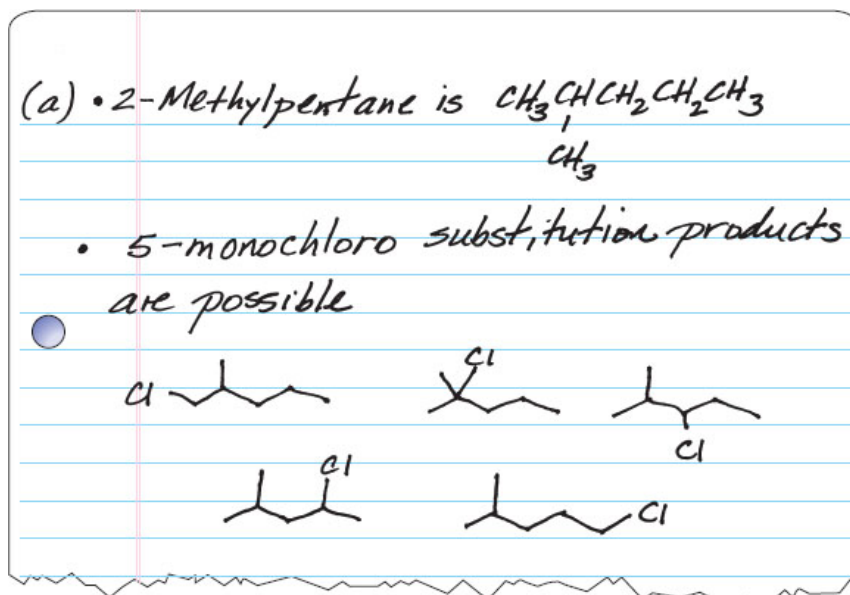 (a) • 2-Methylpentane is CH3CHCH2CH2CH3
CH3
• 5-monochloro substitution products
are possible
Cl Cl
Cl
Cl Cl